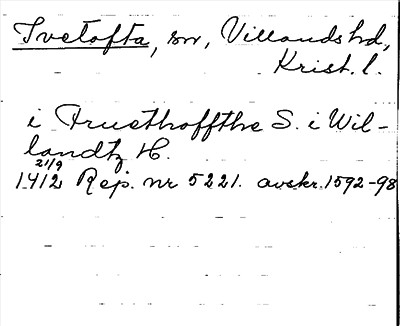 Ivetofta, sn, Villands hd,
Krist. l.
i Iruethoffthe S. i Wil-
landtz H.
21/9
1412 Rep. nr 5221. avskr. 1592-98